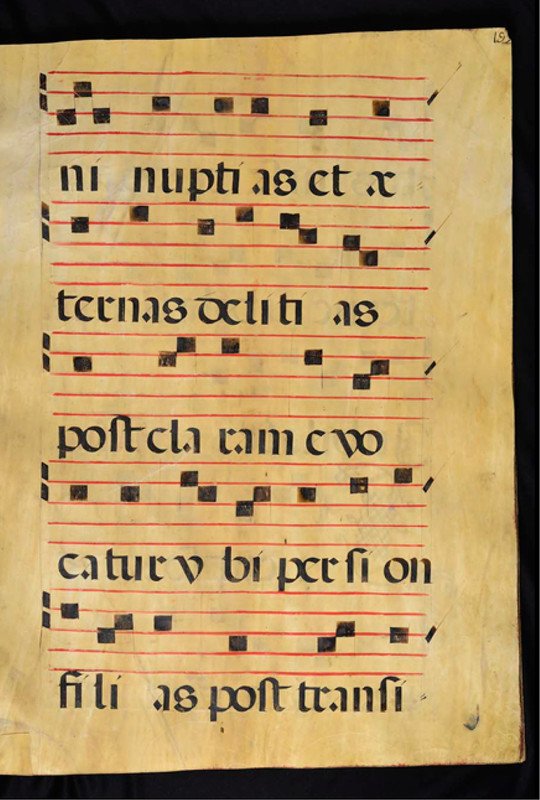 ni nupti as et æ
ternas deliti as
post cla ram e vo
catur v bi per si on
fi li as post transi